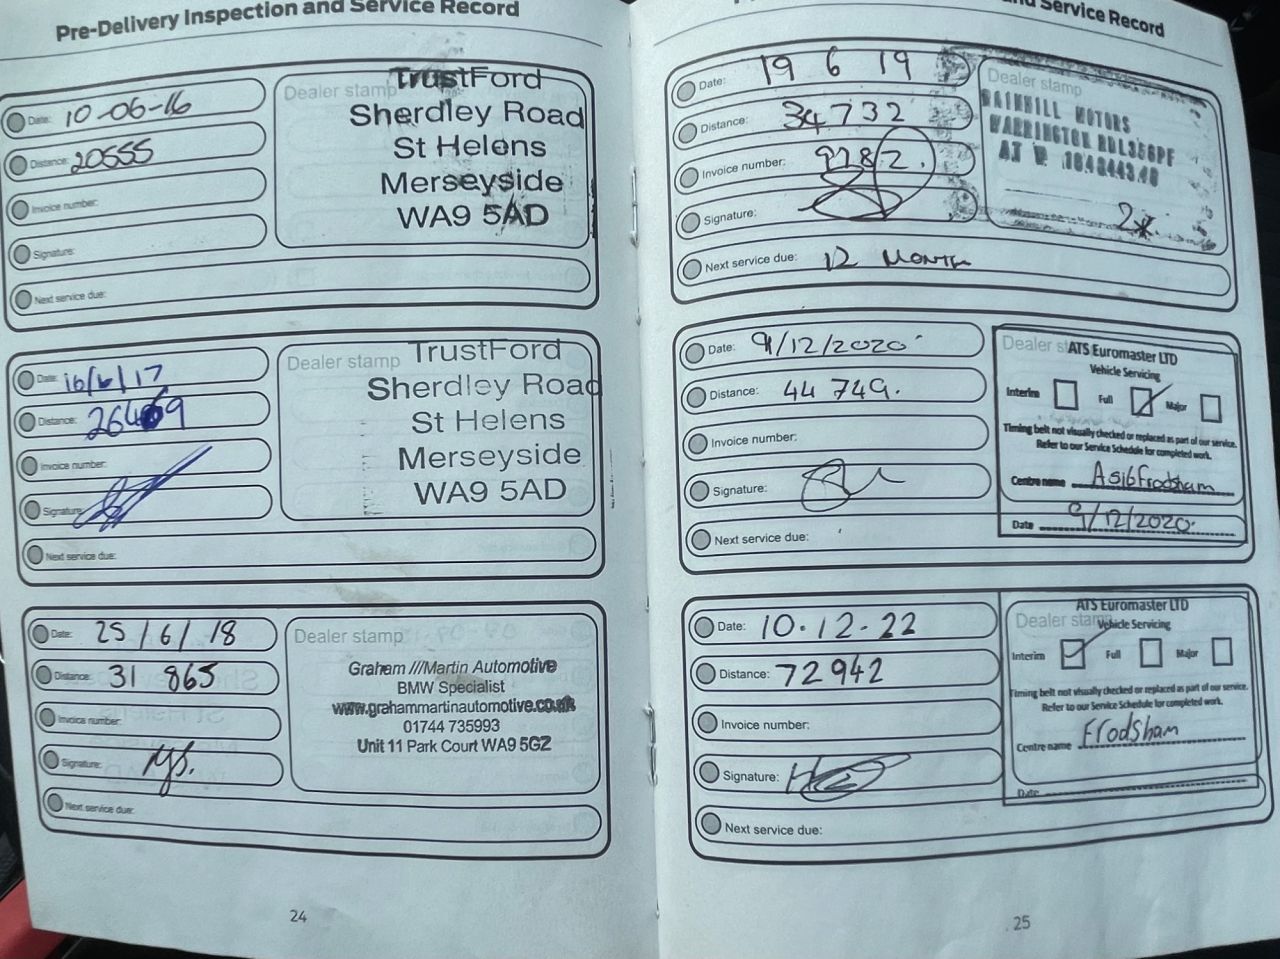 Pre-Delivery Inspection and Service Record
Date: 10-06-16
Distance: 20555
Invoice number:
Signature:
Next service due:
Dealer stamp
TrustFord
Sherdley Road
St Helens
Merseyside
WA9 5AD
Date: 16/6/17
Distance: 26469
Invoice number:
Signature:
Next service due:
Dealer stamp
TrustFord
Sherdley Road
St Helens
Merseyside
WA9 5AD
Date: 25/6/18
Distance: 31 865
Invoice number:
Signature:
Next service due:
Dealer stamp
Graham ///Martin Automotive
BMW Specialist
www.grahammartinautomotive.co.uk
01744 735993
Unit 11 Park Court WA9 5GZ
24
and Service Record
Date: 19 6 19
Distance: 34732
Invoice number:
Signature:
Next service due: 12 MONTH
Dealer stamp
RAINHILL MOTORS
WARRINGTON RDL356PF
Date: 9/12/2020
Distance: 44 749.
Invoice number:
Signature:
Next service due:
Dealer
ATS Euromaster LTD
Vehicle Servicing
Interim Full Major
Timing belt not visually checked or replaced as part of our service.
Refer to our Service Schedule for completed work.
Centre name Frodsham
Date 9/12/2020
Date: 10.12.22
Distance: 72942
Invoice number:
Signature:
Next service due:
Dealer stamp
ATS Euromaster LTD
Vehicle Servicing
Interim Full Major
Timing belt not visually checked or replaced as part of our service.
Refer to our Service Schedule for completed work.
Centre name Frodsham
Date
25